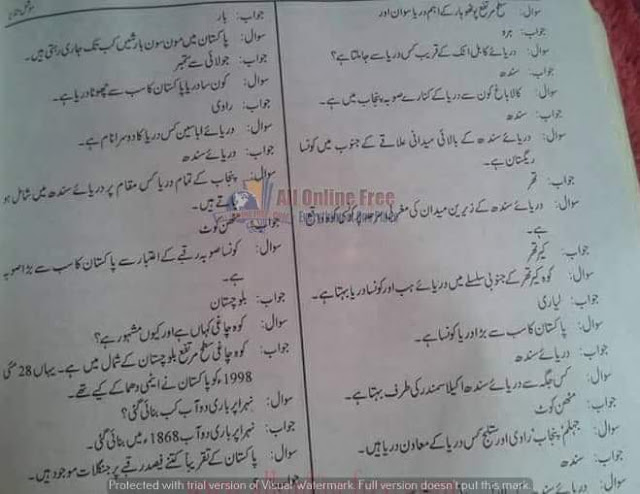 سوال: سطح مرتفع پوٹھوہار کے اہم دریا سواں اور
جواب: ہرو
سوال: دریائے کابل اٹک کے قریب کس دریا سے جا ملتا ہے؟
جواب: سندھ
سوال: کالا باغ کون سے دریا کے کنارے صوبہ پنجاب میں ہے۔
جواب: سندھ
سوال: دریائے سندھ کے بالائی میدانی علاقے کے جنوب میں کونسا
ریگستان ہے۔
جواب: تھر
سوال: دریائے سندھ کے زیریں میدان کی
ہے۔
جواب: کیرتھر
سوال: کوہ کیرتھر کے جنوبی سلسلے میں دریائے حب اور کونسا دریا بہتا ہے۔
جواب: لیاری
سوال: پاکستان کا سب سے بڑا دریا کونسا ہے۔
جواب: دریائے سندھ
سوال: کس جگہ سے دریائے سندھ اکیلا سمندر کی طرف بہتا ہے۔
جواب: مٹھن کوٹ
سوال: جہلم، پنجاب، راوی اور ستلج کس دریا کے معاون دریا ہیں۔
جواب: سندھ
جواب: بار
سوال: پاکستان میں مون سون بارشیں کب تک جاری رہتی ہیں۔
جواب: جولائی سے ستمبر
سوال: کون سا دریا پاکستان کا سب سے چھوٹا دریا ہے۔
جواب: راوی
سوال: دریائے اباسین کس دریا کا دوسرا نام ہے۔
جواب: دریائے سندھ
سوال: پنجاب کے تمام دریا کس مقام پر دریائے سندھ میں شامل ہو
جاتے ہیں۔
جواب: مٹھن کوٹ
سوال: کونسا صوبہ رقبے کے اعتبار سے پاکستان کا سب سے بڑا صوبہ
ہے۔
جواب: بلوچستان
سوال: کوہ چاغی کہاں ہے اور کیوں مشہور ہے؟
جواب: کوہ چاغی سطح مرتفع بلوچستان کے شمال میں ہے۔ یہاں 28 مئی
1998ء کو پاکستان نے ایٹمی دھماکے کیے تھے۔
سوال: نہر اپر باری دوآب کب بنائی گئی؟
جواب: نہر اپر باری دوآب 1868ء میں بنائی گئی۔
سوال: پاکستان کے تقریباً کتنے فیصد رقبے پر جنگلات موجود ہیں۔
جواب:
All Online Free
Protected with trial version of Visual Watermark. Full version doesn't put this mark.